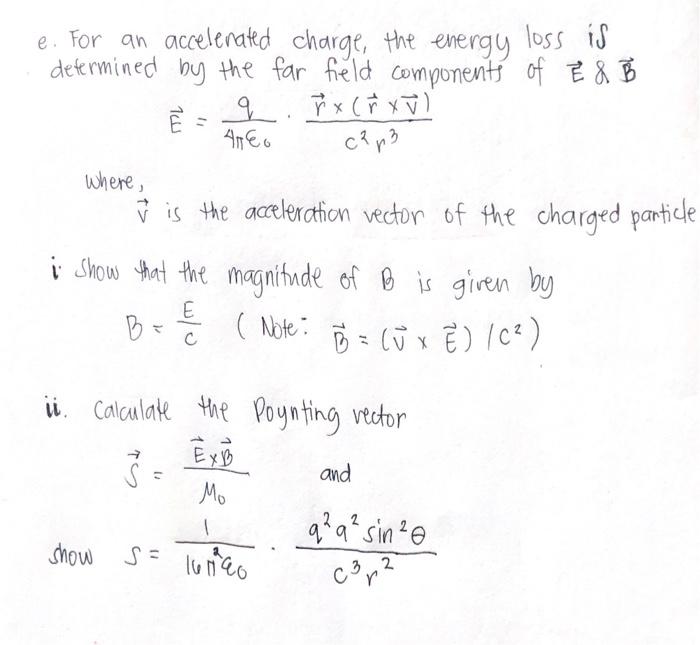 e. For an accelerated charge, the energy loss is
determined by the far field components of E⃗ & B⃗
E⃗ = q / 4πε₀ · r⃗ × (r⃗ × v̇⃗) / c² r³
where,
v̇⃗ is the acceleration vector of the charged particle
i Show that the magnitude of B is given by
B = E / c ( Note: B⃗ = (v⃗ × E⃗) / c² )
ii. Calculate the Poynting vector
S⃗ = E⃗ × B⃗ / M₀ and
show S = 1 / 16π²ε₀ · q² a² sin² θ / c³ r²